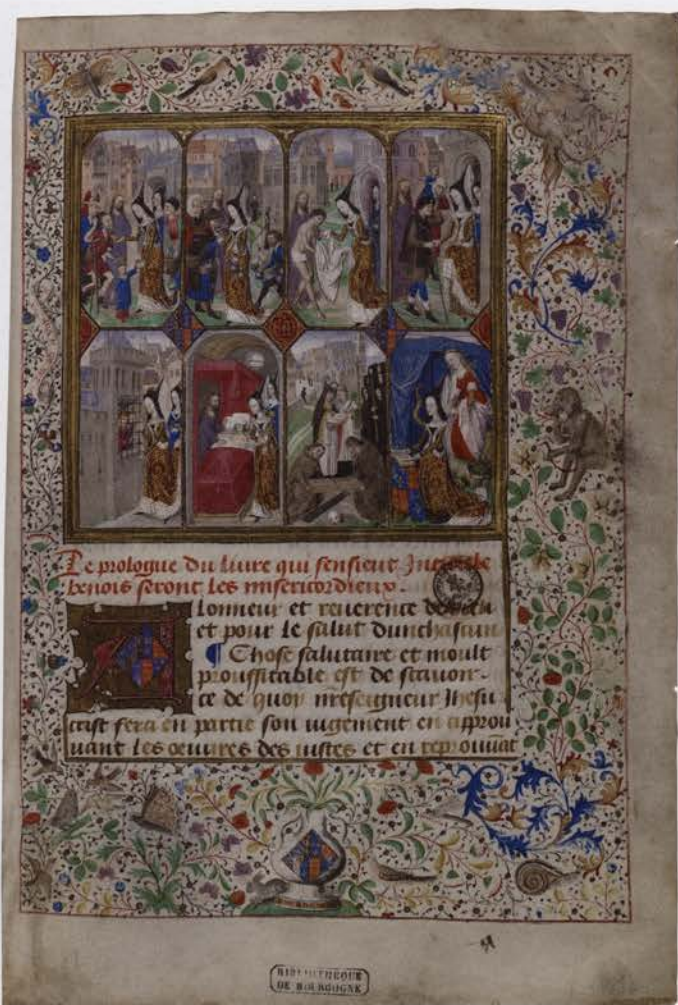 Le prologue du liure qui sensieut Intitule
benois seront les misericordieux.
A lonneur et reuerence de dieu
et pour le salut dunchascun
¶ Chose salutaire et moult
prouffitable est de scauoir
ce de quoy nreseigneur Jhesu
crist fera en partie son iugement en approu
uant les oeuures des iustes et en reprouuāt
BIBLIOTHEQUE
DE BOURGOGNE